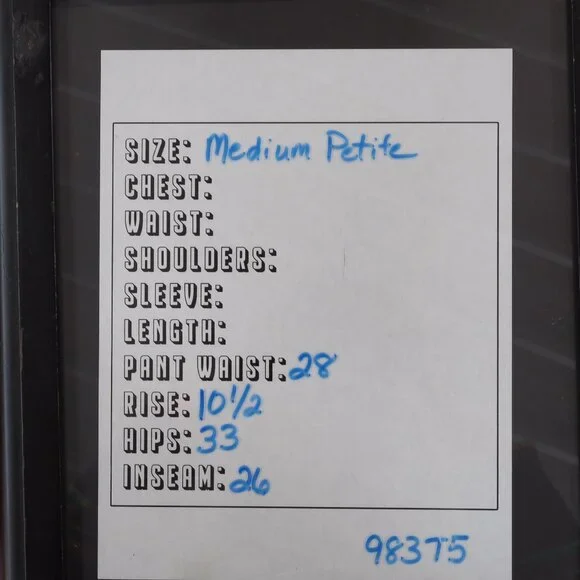 SIZE: Medium Petite
CHEST:
WAIST:
SHOULDERS:
SLEEVE:
LENGTH:
PANT WAIST: 28
RISE: 10 1/2
HIPS: 33
INSEAM: 26
98375